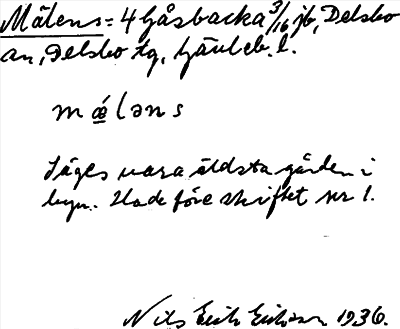 Mälens = 4 Gåsbacka 3/16 jb, Delsbo
an, Delsbo tg, Gävleb. l.
mǽləns
Säges vara äldsta gården i
byn. Hade före skiftet nr 1.
Nils Erik Erikson 1936.